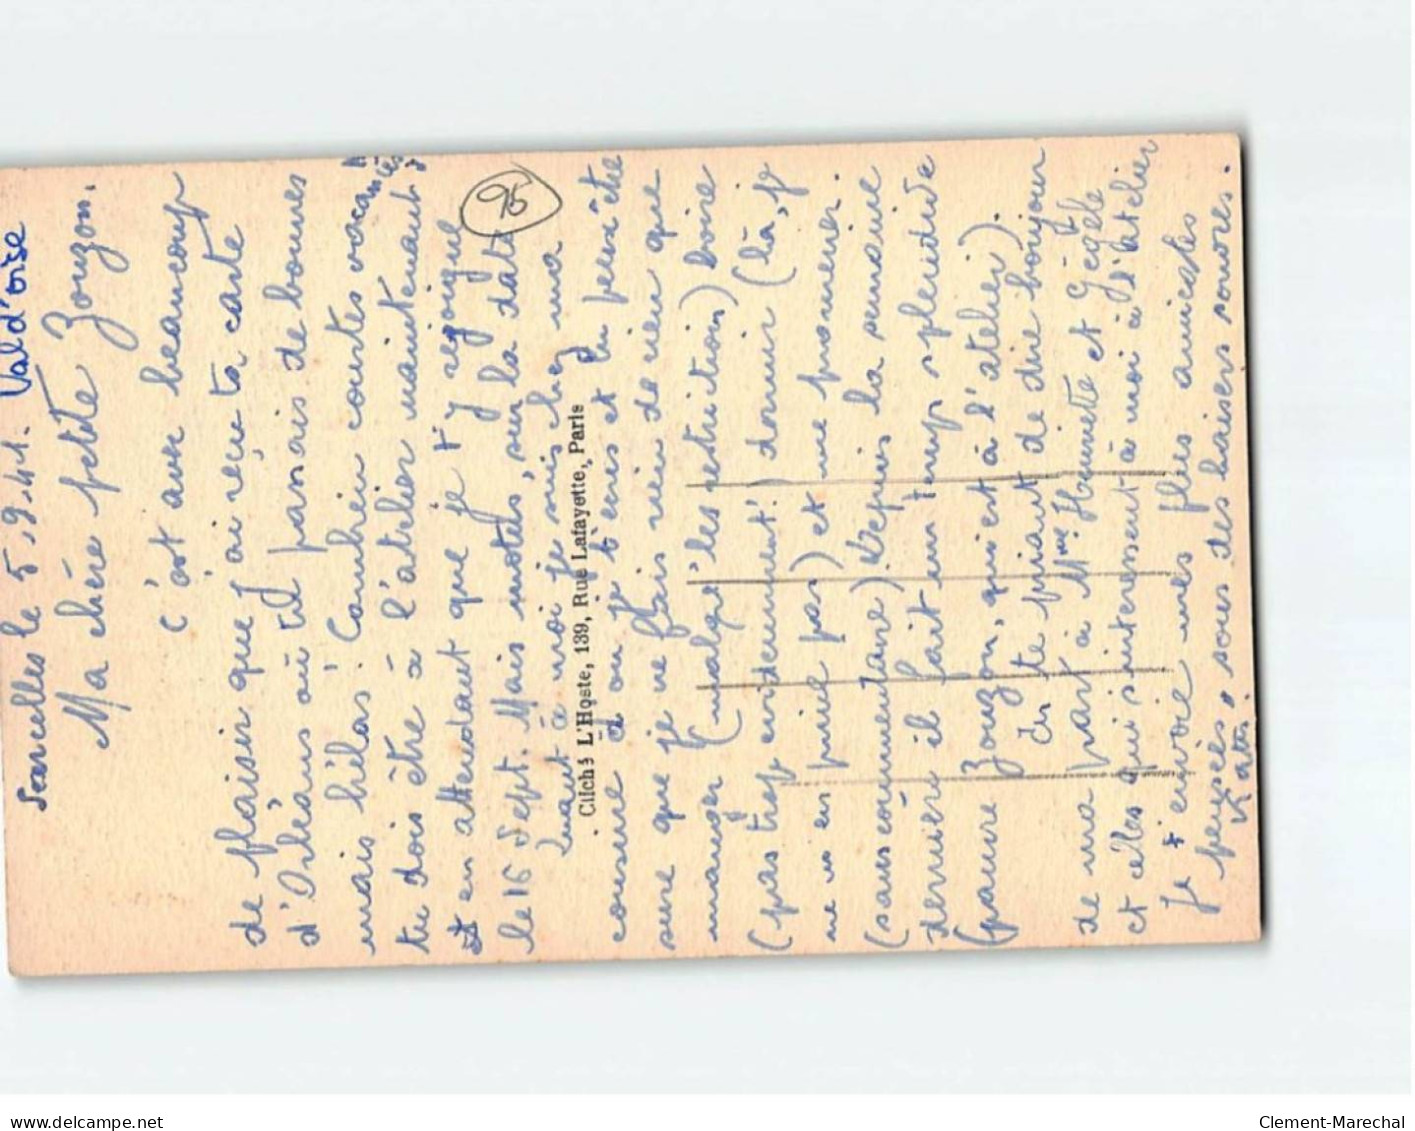 Sarcelles le 5.9.41. Val d'oise
Ma chère petite Zouzon.
c'est avec beaucoup
de plaisir que j'ai reçu ta carte
d'Orléans où tu passais de bonnes
mais hélas! courtes vacances
tu dois être à l'atelier maintenant
en attendant que je t'y rejoigne
le 16 Sept. Mais motus, sur la date
95
Quant à moi je suis chez ma
Cliché L'Hoste, 139, Rue Lafayette, Paris
cousine d'où je t'écris et tu peux être
sure que je ne fais rien de rien que
manger (malgré les restrictions) boire
(pas trop évidemment!) dormir (là, je
ne m'en prive pas) et me promener.
(sans commentaire) Depuis la semaine
dernière il fait un temps splendide
(pauvre Zouzon, qui est à l'atelier).
En te priant de dire bonjour
de ma part à Mme Hounette et Gégèle
et celles qui s'interessent à moi à l'atelier
Je t'envoie mes plus amicales
pensées, sous des baisers sonores.
Kate.
delcampe.net
Clement-Marechal